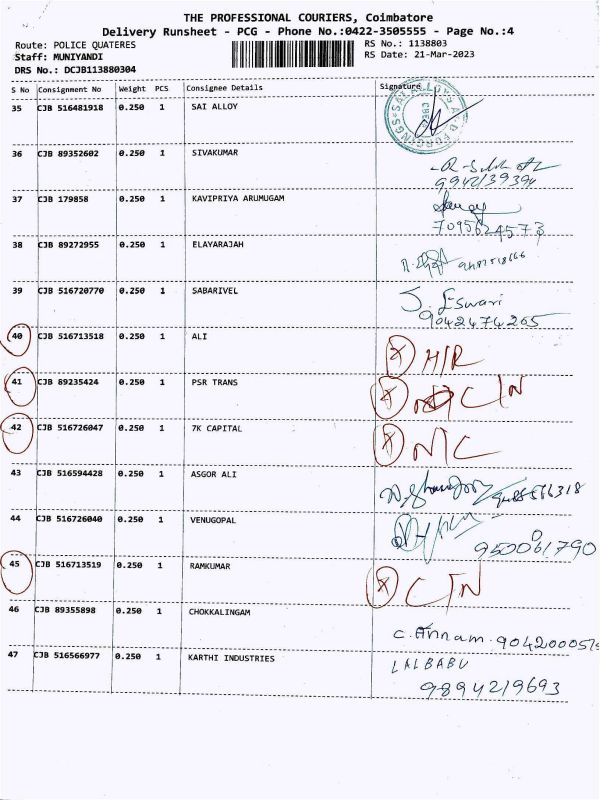 THE PROFESSIONAL COURIERS, Coimbatore
Delivery Runsheet - PCG - Phone No.:0422-3505555 - Page No.:4
Route: POLICE QUATERES RS No.: 1138803
Staff: MUNIYANDI RS Date: 21-Mar-2023
DRS No.: DCJB113880304
S No Consignment No Weight PCS Consignee Details Signature
35 CJB 516481918 0.250 1 SAI ALLOY
36 CJB 89352602 0.250 1 SIVAKUMAR
9942139394
37 CJB 179858 0.250 1 KAVIPRIYA ARUMUGAM
7095624573
38 CJB 89272955 0.250 1 ELAYARAJAH
39 CJB 516720770 0.250 1 SABARIVEL J. Eswari
9042474265
40 CJB 516713518 0.250 1 ALI X H/R
41 CJB 89235424 0.250 1 PSR TRANS X C/N
42 CJB 516726047 0.250 1 7K CAPITAL X N/C
43 CJB 516594428 0.250 1 ASGOR ALI
44 CJB 516726040 0.250 1 VENUGOPAL
45 CJB 516713519 0.250 1 RAMKUMAR X C/N
46 CJB 89355898 0.250 1 CHOKKALINGAM
C. Annam.
47 CJB 516566977 0.250 1 KARTHI INDUSTRIES LALBABU
9894219693